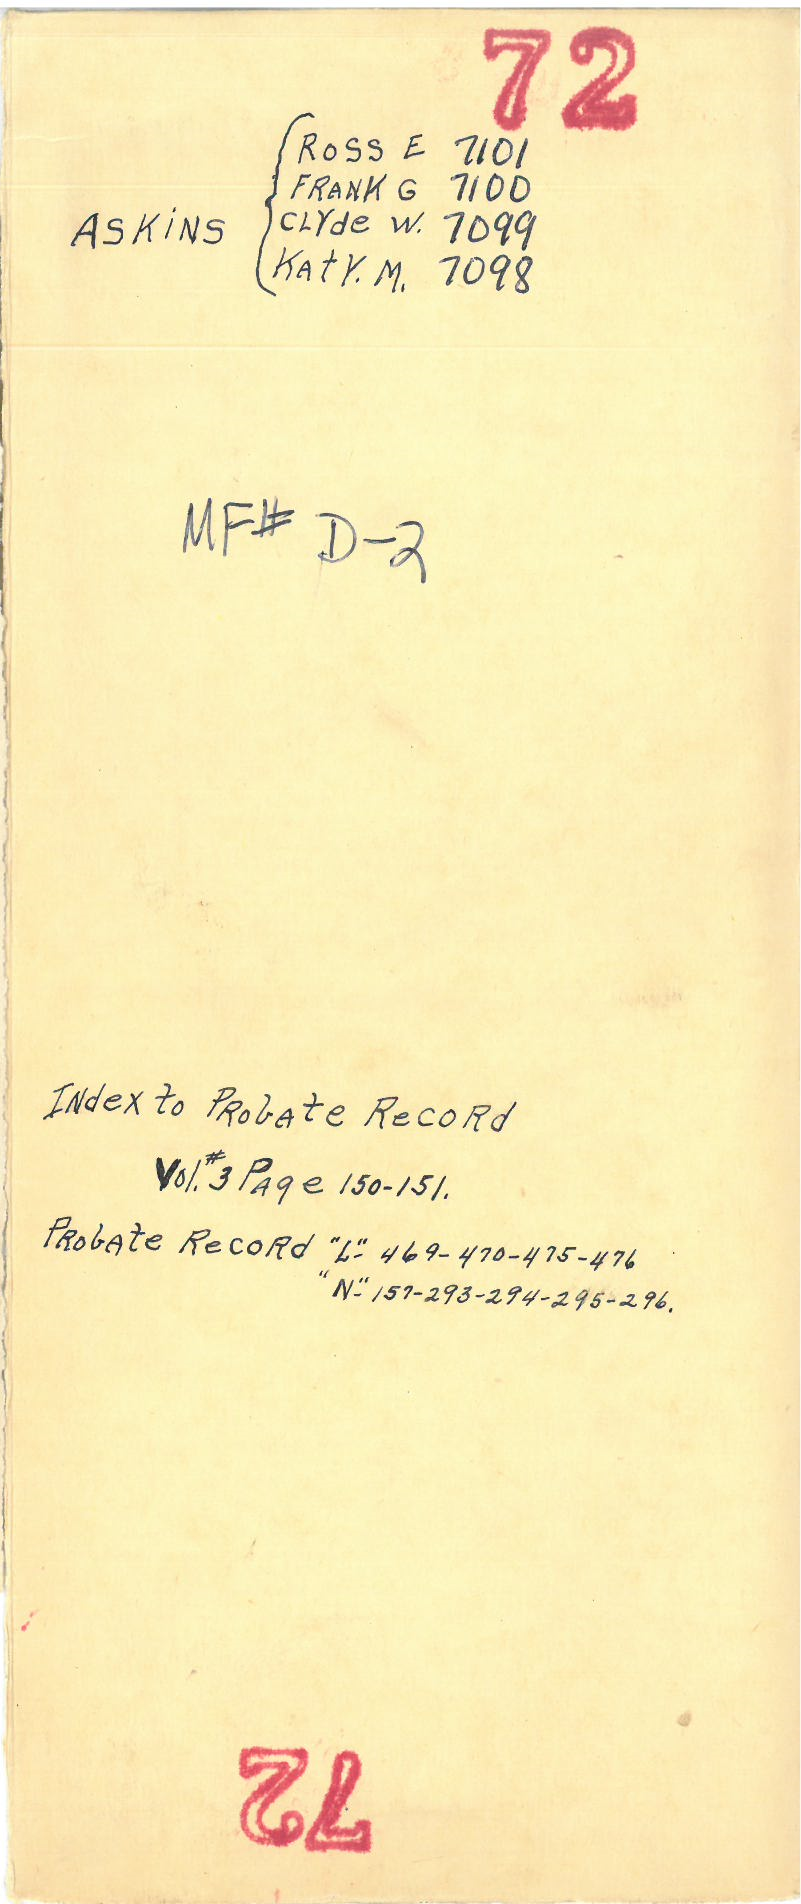 72
ROSS E 7101
FRANK G 7100
ASKINS CLYde W. 7099
KAtY. M. 7098
MF# D-2
INdex to PRobAte RecoRd
Vol. #3 PAge 150-151.
PRobAte RecoRd "L"- 469-470-475-476
"N"- 157-293-294-295-296.
72